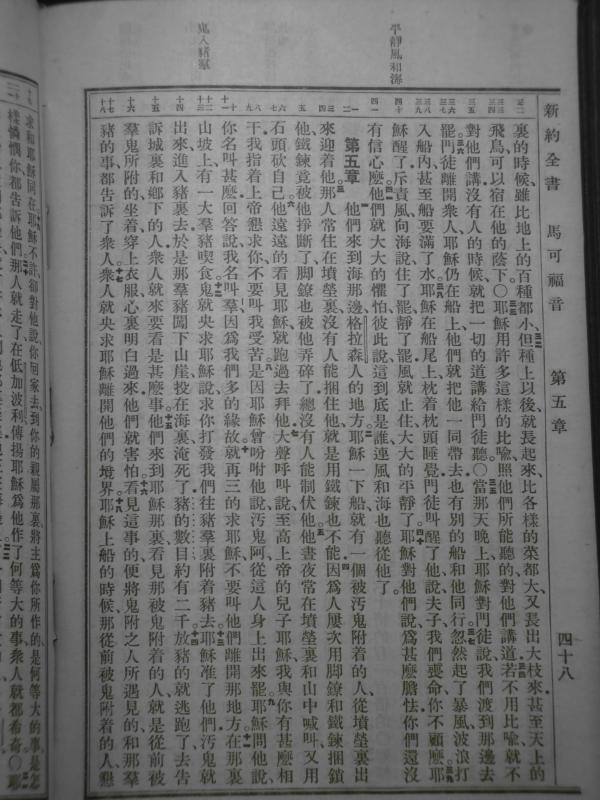 新約全書 馬可福音 第五章 四十八
平靜風和海
鬼入豬羣
裏的時候雖比地上的百種都小但種上以後就長起來比各樣的菜都大又長出大枝來甚至天上的
飛鳥可以宿在他的蔭下○耶穌用許多這樣的比喻照他們所能聽的對他們講道若不用比喻就不
對他們講沒有人的時候就把一切的道講給門徒聽○當那天晚上耶穌對門徒說我們渡到那邊去
罷門徒離開衆人耶穌仍在船上他們就把他一同帶去也有別的船和他同行忽然起了暴風波浪打
入船內甚至船要滿了水耶穌在船尾上枕着枕頭睡覺門徒叫醒了他說夫子我們喪命你不顧麽耶
穌醒了斥責風向海說住了罷靜了罷風就止住大大的平靜了耶穌對他們說爲甚麽膽怯你們還沒
有信心麽他們就大大的懼怕彼此說這到底是誰連風和海也聽從他了
第五章 他們來到海那邊格拉森人的地方耶穌一下船就有一個被汚鬼附着的人從墳塋裏出
來迎着他那人常住在墳塋裏沒有人能捆住他就是用鐵鍊也不能因爲人屢次用脚鐐和鐵鍊捆鎖
他鐵鍊竟被他掙斷了脚鐐也被他弄碎了總沒有人能制伏他他晝夜常在墳塋裏和山中喊叫又用
石頭砍自己他遠遠的看見耶穌就跑過去拜他大聲呼叫說至高上帝的兒子耶穌我與你有甚麽相
干我指着上帝懇求你不要叫我受苦是因耶穌曾吩咐他說汚鬼阿從這人身上出來罷耶穌問他說
你名叫甚麽回答說我名叫羣因爲我們多的緣故就再三的求耶穌不要叫他們離開那地方在那裏
山坡上有一大羣豬喫食鬼就央求耶穌說求你打發我們往豬羣裏附着豬去耶穌准了他們汚鬼就
出來進入豬裏去於是那羣豬闖下山崖投在海裏淹死了豬的數目約有二千放豬的就逃跑了去告
訴城裏和鄉下的人衆人就來要看是甚麽事他們來到耶穌那裏看見那被鬼附着的人就是從前被
羣鬼所附的坐着穿上衣服心裏明白過來他們就害怕看見這事的便將鬼附之人所遇見的和那羣
豬的事都告訴了衆人衆人就央求耶穌離開他們的境界耶穌上船的時候那從前被鬼附着的人懇
求和耶穌同在耶穌不許卻對他說你回家去到你的親屬那裏將主爲你所作的是何等大的事是怎
樣憐憫你都告訴他們那人就走了在低加波利傳揚耶穌爲他作了何等大的事衆人就都希奇○耶